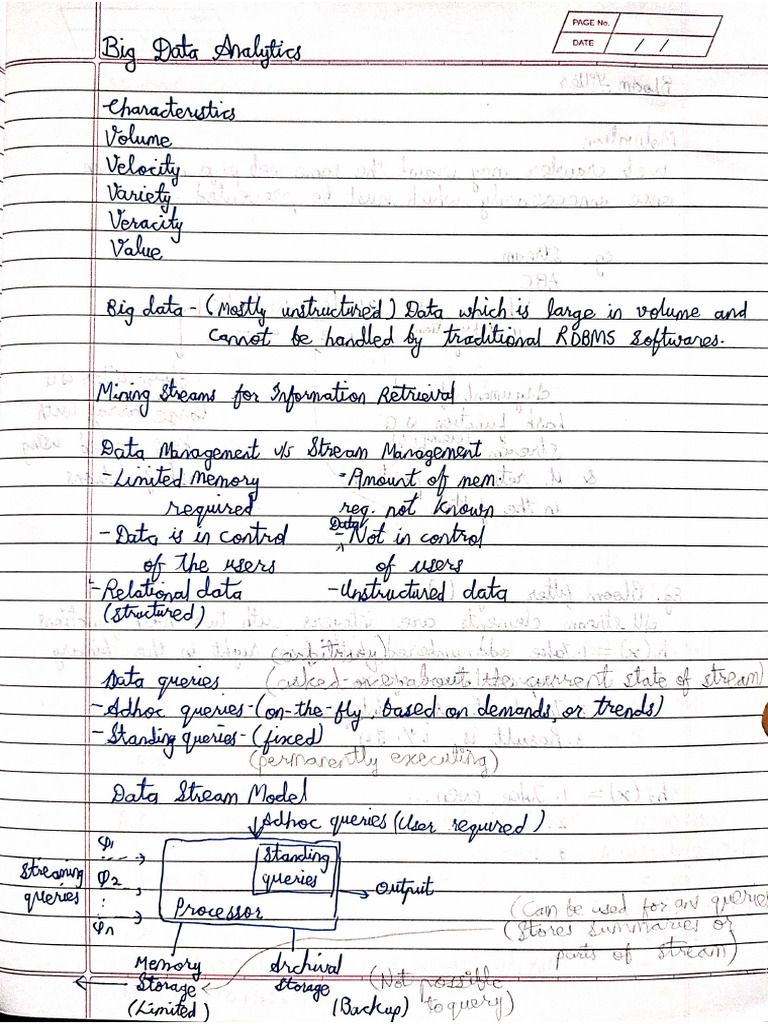 PAGE No.
DATE / /
Big Data Analytics
Characteristics
Volume
Velocity
Variety
Veracity
Value
Big data - (Mostly unstructured) Data which is large in volume and
cannot be handled by traditional RDBMS softwares.
Mining Streams for Information Retrieval
Data Management v/s Stream Management
- Limited Memory - Amount of mem.
required req. not known
- Data is in control - Data Not in control
of the users of users
- Relational data - Unstructured data
(structured)
Data queries (asked about the current state of stream)
- Adhoc queries - (on-the-fly, based on demands, or trends)
- Standing queries - (fixed)
(permanently executing)
Data Stream Model
Adhoc queries (User required)
φ1
Standing
Streaming φ2 queries → Output
queries :
Processor
φn
(Can be used for ans queries)
(Stores summaries or
parts of stream)
Memory Archival
Storage Storage (Not possible
(Limited) (Backup) to query)